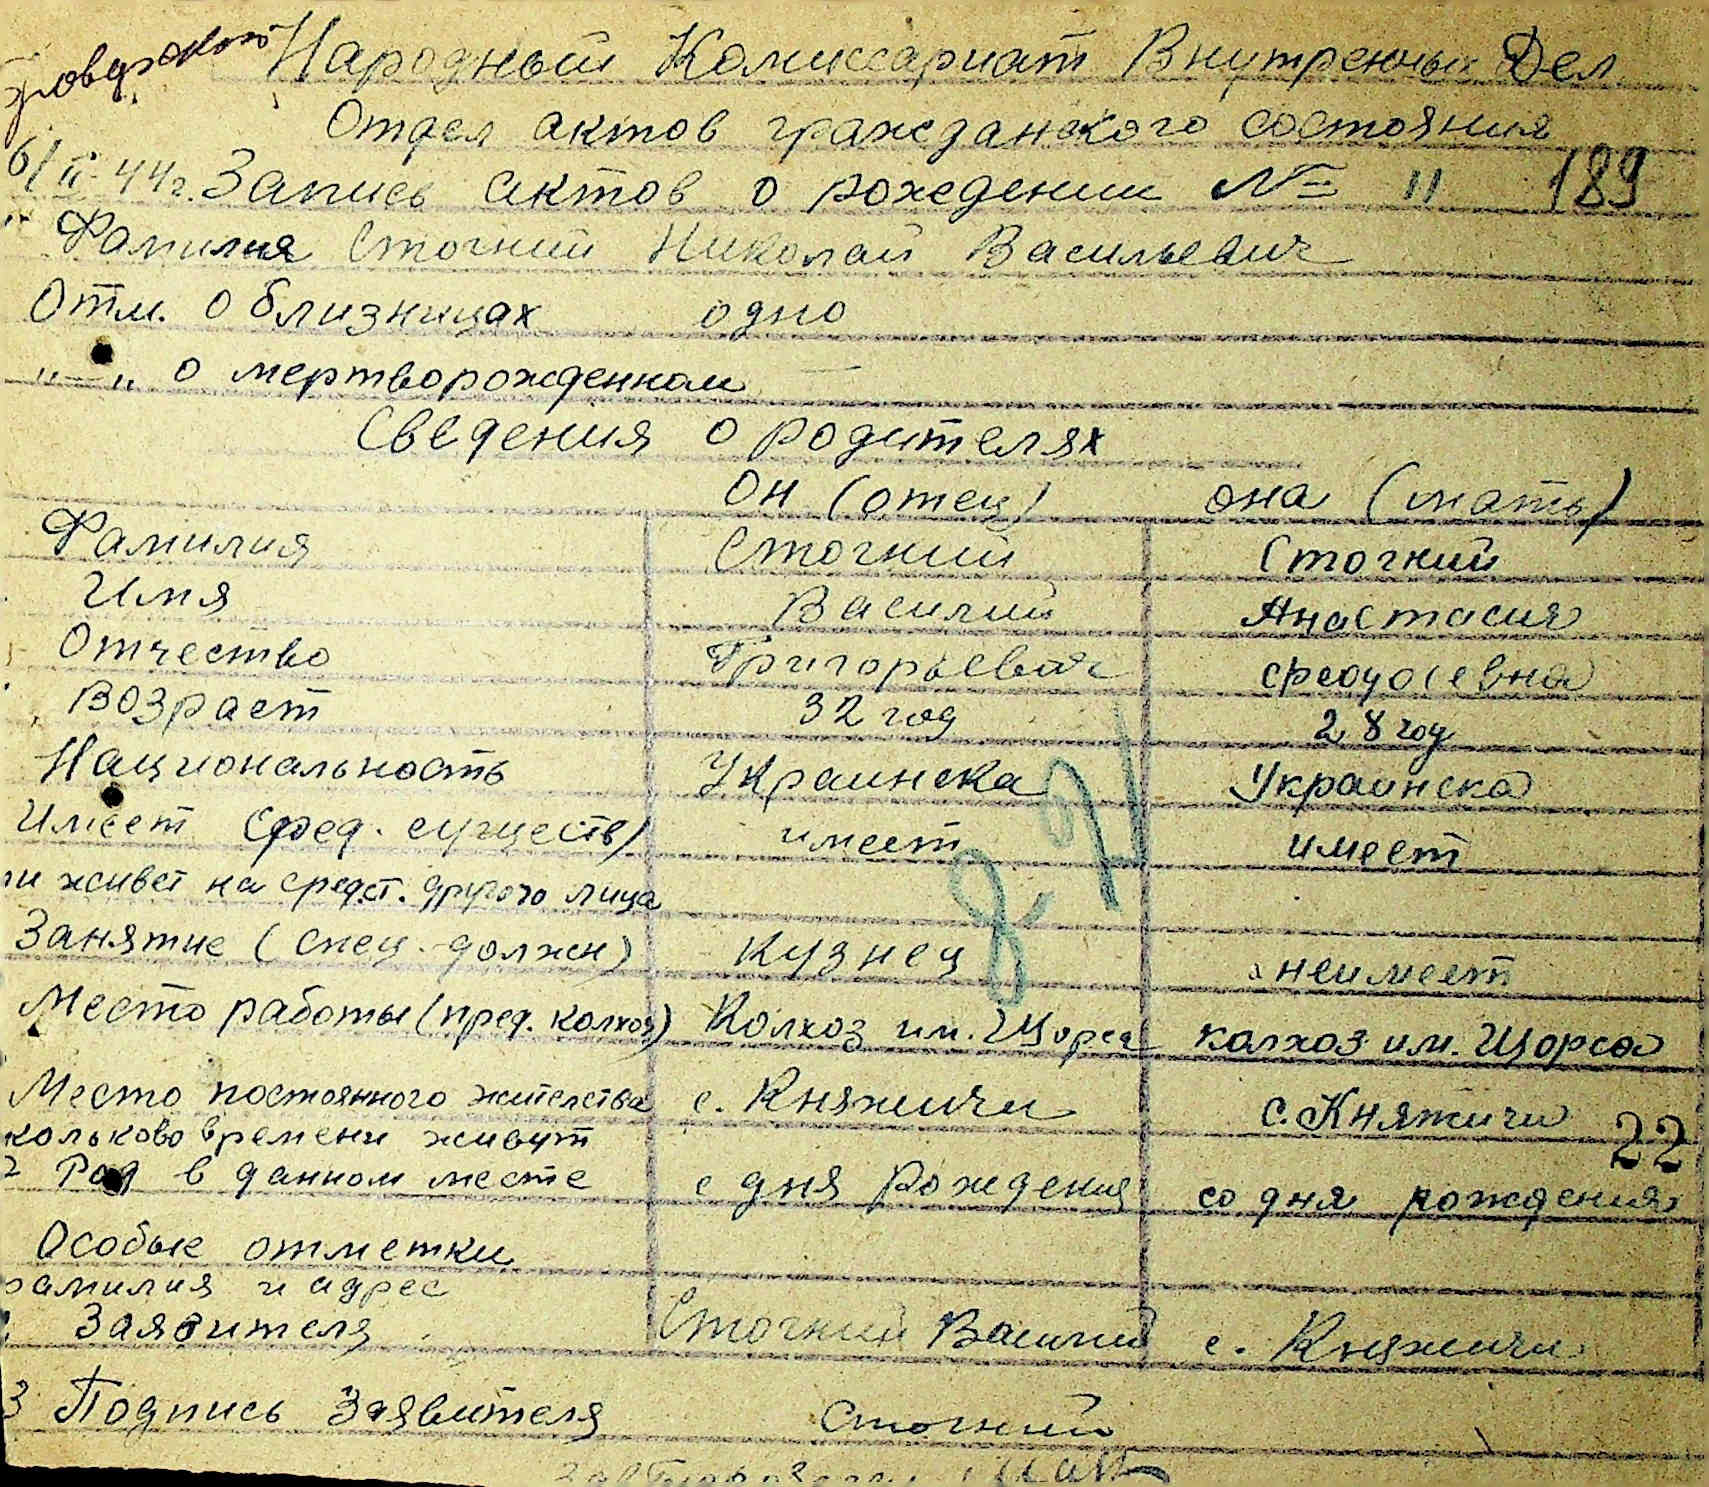 Народный Комиссариат Внутренных Дел
Отдел актов гражданского состояния
6/II-44г. Запись актов о рождении № 11 189
Фамилия Стогний Николай Васильевич
Отм. о близницах одно
"—" о мертворожденном —
Сведения о родителях
Он (отец) она (мать)
Фамилия Стогний Стогний
Имя Василий Анастасия
Отчество Григорьевич
Возраст 32 год 28 год
Национальность Украинска Украинска
Имеет сред. существ/ имеет имеет
ли живет на средст. другого лица
Занятие (спец. должн) Кузнец неимеет
Место работы (пред. колхоз) Колхоз им. Щорса колхоз им. Щорса
Место постоянного жителства с. Княжичи с. Княжичи
колько во времени живут 22
Род в данном месте с дня рождения со дня рождения
Особые отметки
фамилия и адрес
Заявителя Стогний Василий с. Княжичи
3 Подпись Заявителя Стогний